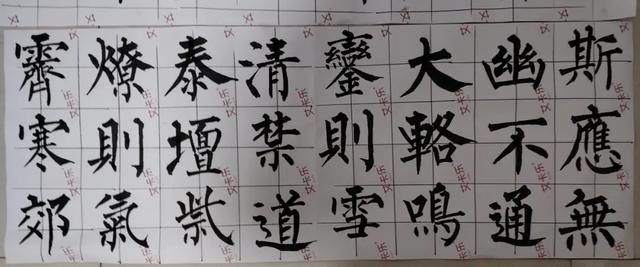 斯應無
幽不通
大輅鳴
鑾則雪
清禁道
泰壇祡
燎則氣
霽寒郊